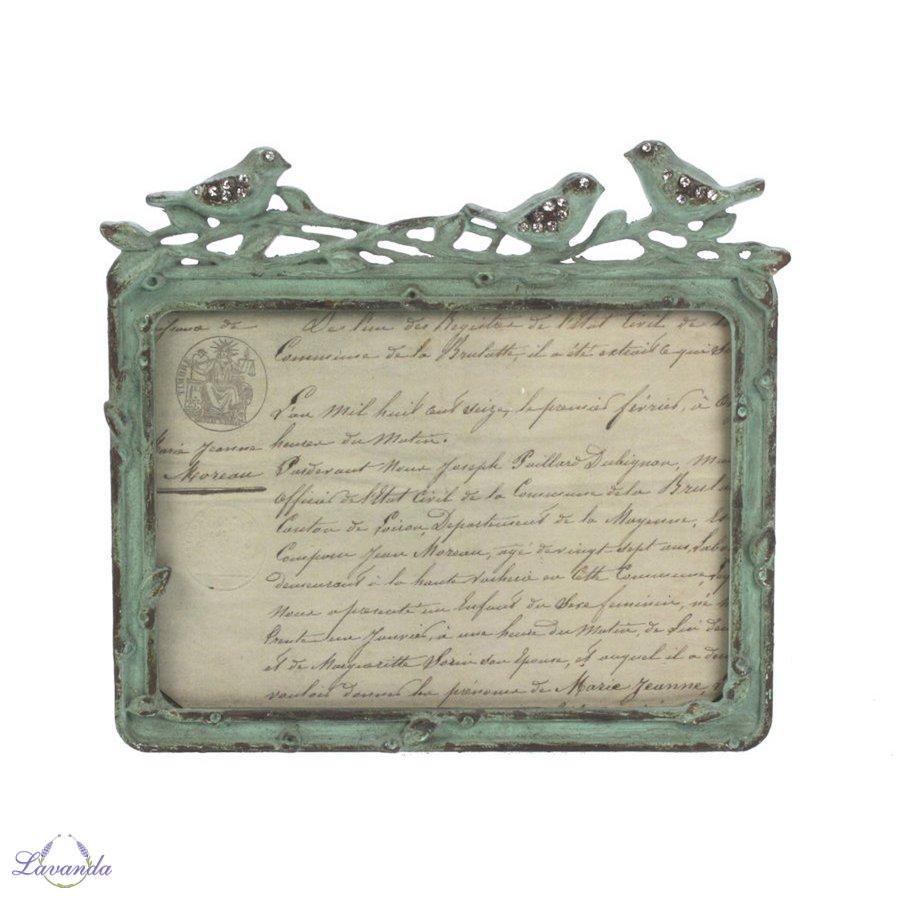 De l'un des Registre de l'Etat Civil de
Commune de la Brulatte, il a été extrait ce qui
TIMBRE
L'an mil huit cent seize, le premier février, à
Marie Jeanne
heure du Matin.
Moreau
Pardevant Nous Joseph Paillard Dubignon,
officier de l'Etat Civil de la Commune de la
Canton de Loiron, Departement de la Mayenne,
Comparu Jean Moreau, agé de vingt sept ans,
demeurant à la haute en Cette Commune
Nous a presenté un Enfant du Sexe feminin, né
trente un Janvier, à une heure du Matin, de Lui
et de Margueritte Son Epouse, et auquel il a
vouloir donner les prénoms de Marie Jeanne
Lavanda